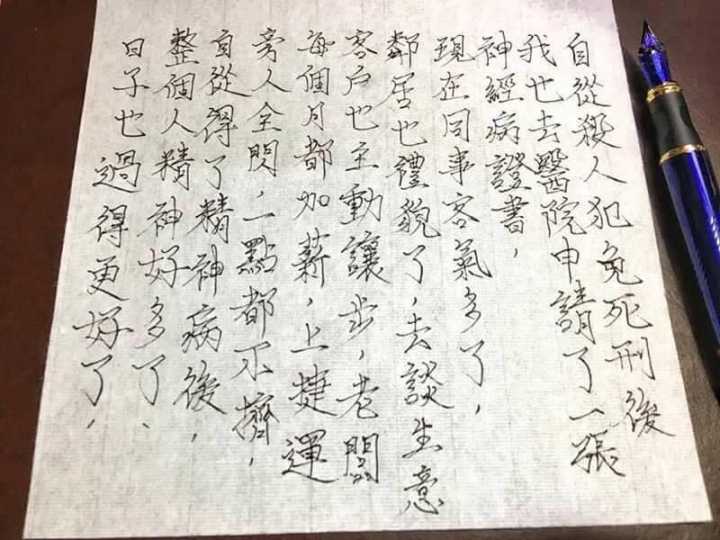 自從殺人犯免死刑後
我也去醫院申請了一張
神經病證書，
現在同事客氣多了，
鄰居也禮貌了，去談生意
客戶也主動讓步，老闆
每個月都加薪，上捷運
旁人全閃，一點都不擠，
自從得了精神病後，
整個人精神好多了、
日子也過得更好了，